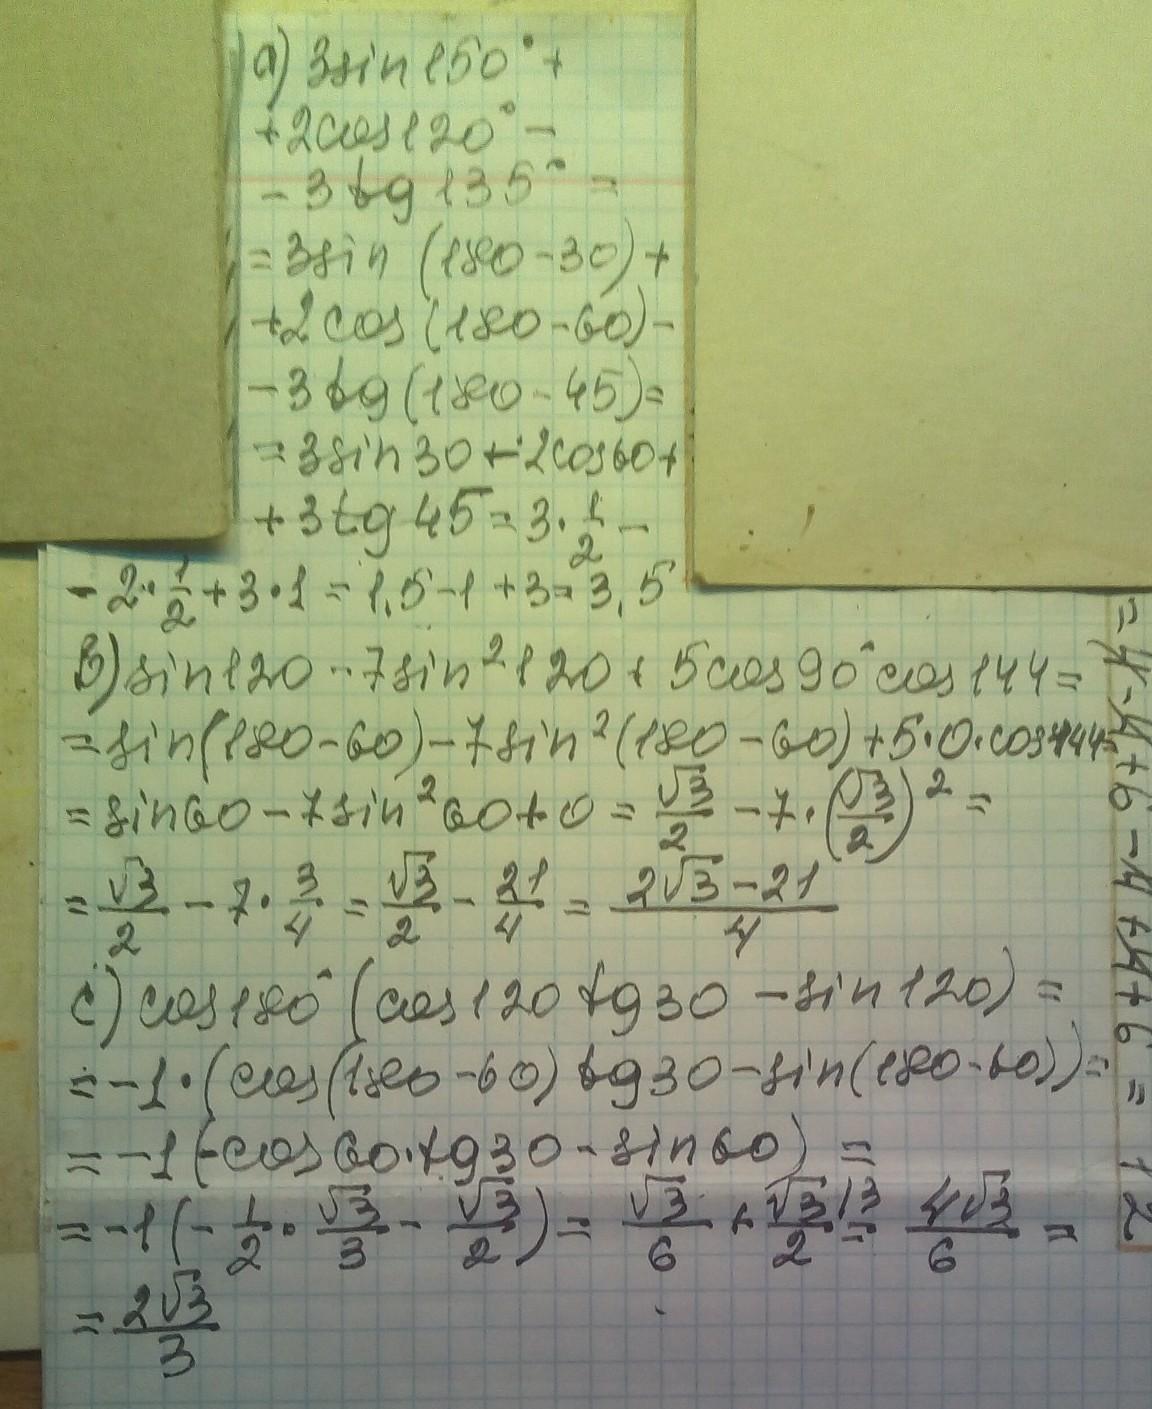 a) 3sin150°+
+2cos120°-
-3tg135°=
=3sin (180-30)+
+2cos(180-60)-
-3tg(180-45)=
=3sin30+-2cos60+
+3tg45=3·1/2-
-2·1/2+3·1=1,5-1+3=3,5
B) sin120-7sin²120+5cos90°cos144=
=sin(180-60)-7sin²(180-60)+5·0·cos144=
=sin60-7sin²60+0=√3/2-7·(√3/2)²=
=√3/2-7·3/4=√3/2-21/4=(2√3-21)/4
C) cos180°(cos120tg30-sin120)=
=-1·(cos(180-60)tg30-sin(180-60))=
=-1(-cos60·tg30-sin60)=
=-1(-1/2·√3/3-√3/2)=√3/6+√3/2\3=4√3/6=
=2√3/3
=4-4+6-4+4+6=12